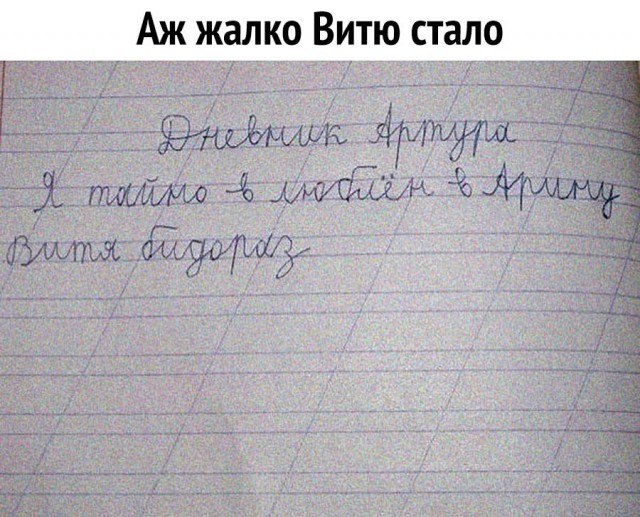 Аж жалко Витю стало
Дневник Артура
Я тайно в люблён в Арину
Витя бидораз